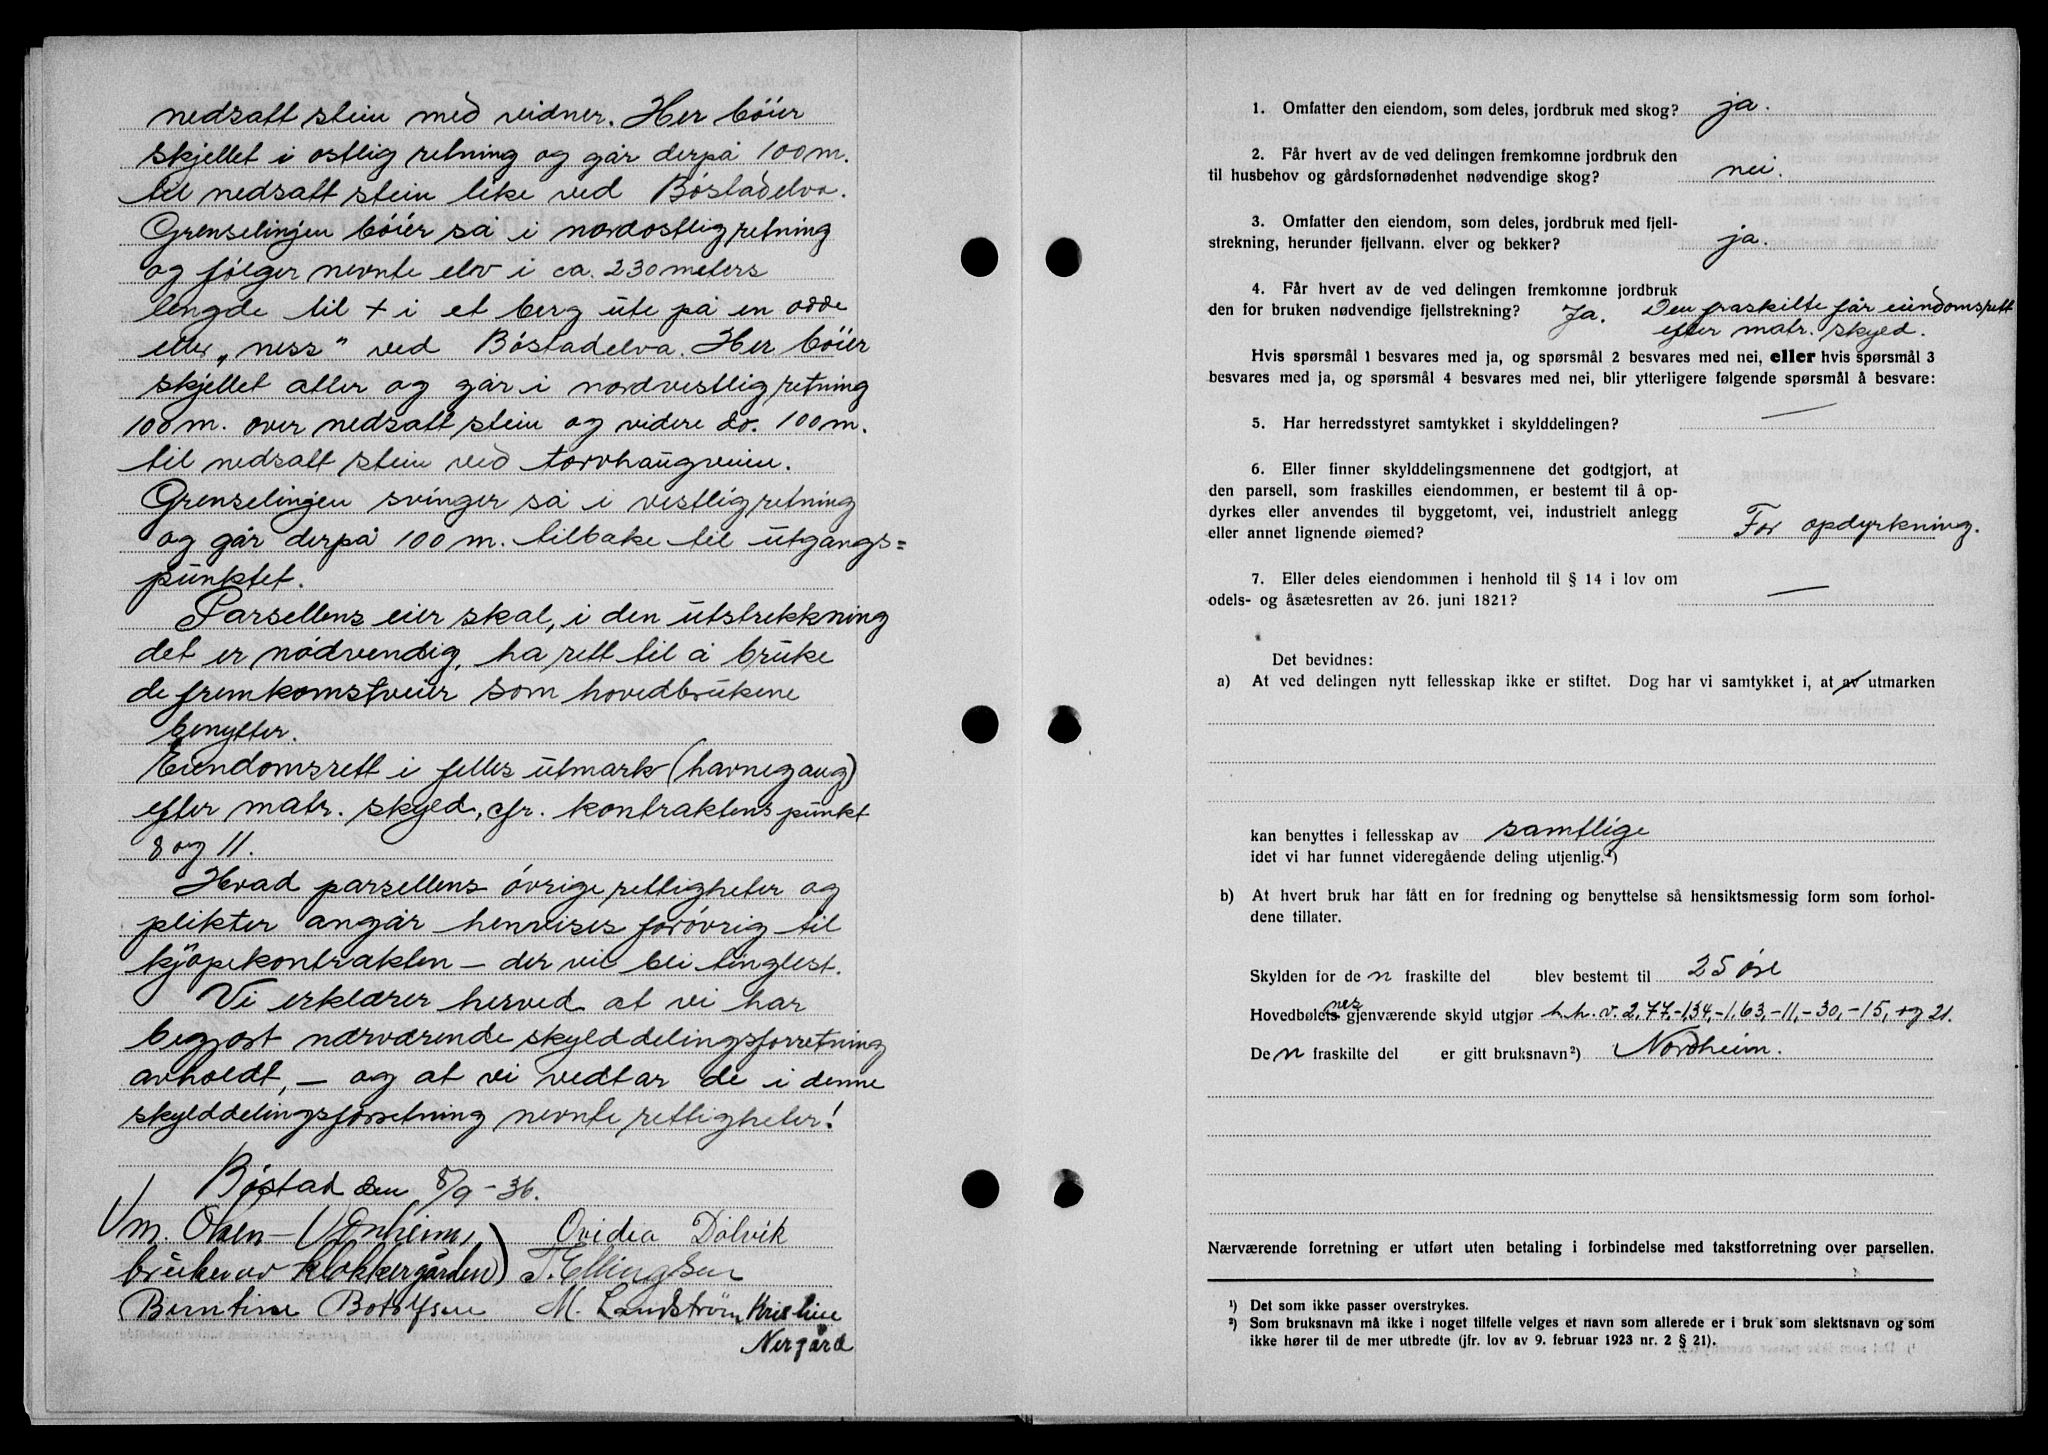 nedsatt stein med vidner. Her böier
skjellet i ostlig retning og går derpå 100 m.
til nedsatt stein like ved Bøstadelva.
Grenselinjen böier så i nordostlig retning
og følger nevnte elv i ca. 230 meters
lengde til + i et berg ute på en odde
eller „ness" ved Bøstadelva. Her böier
skjellet atter og går i nordvestlig retning
100 m. over nedsatt stein og videre do. 100 m.
til nedsatt stein ved torvhaugveien.
Grenselinjen svinger så i vestlig retning
og går derpå 100 m. tilbake til utgangs=
punktet.
Parsellens eier skal, i den utstrekkning
det er nödvendig, ha rett til å bruke
de fremkomstveier som hovedbrukene
benytter.
Eiendomsrett i felles utmark (havnegang)
efter matr. skyld, cfr. kontraktens punkt
8 og 11.
Hvad parsellens övrige rettigheter og
plikter angår henvises forövrig til
kjöpekontrakten – der vil bli tinglest.
Vi erklærer herved at vi har
begjært nærværende skylddelingsforretning
avholdt, – og at vi vedtar de i denne
skylddelingsforretning nevnte rettigheter!
Bøstad den 8/9 – 36.
M. Olsen – Vonheim, Ovidia Dalvik
bruker av Klokkergården) T. Ellingsen
Berntine Botolfsen M. Landström, Kristine
Nergård
1. Omfatter den eiendom, som deles, jordbruk med skog? ja.
2. Får hvert av de ved delingen fremkomne jordbruk den
til husbehov og gårdsfornødenhet nødvendige skog? nei.
3. Omfatter den eiendom, som deles, jordbruk med fjell-
strekning, herunder fjellvann. elver og bekker? ja.
4. Får hvert av de ved delingen fremkomne jordbruk
den for bruken nødvendige fjellstrekning? Ja. Den fraskilte får eiendomsrett
efter matr. skyld.
Hvis spørsmål 1 besvares med ja, og spørsmål 2 besvares med nei, eller hvis spørsmål 3
besvares med ja, og spørsmål 4 besvares med nei, blir ytterligere følgende spørsmål å besvare:
5. Har herredsstyret samtykket i skylddelingen? —
6. Eller finner skylddelingsmennene det godtgjort, at
den parsell, som fraskilles eiendommen, er bestemt til å op-
dyrkes eller anvendes til byggetomt, vei, industrielt anlegg
eller annet lignende øiemed? For opdyrkning.
7. Eller deles eiendommen i henhold til § 14 i lov om
odels- og åsætesretten av 26. juni 1821? —
Det bevidnes:
a) At ved delingen nytt fellesskap ikke er stiftet. Dog har vi samtykket i, at av utmarken
kan benyttes i fellesskap av samtlige
idet vi har funnet videregående deling utjenlig.¹)
b) At hvert bruk har fått en for fredning og benyttelse så hensiktsmessig form som forhol-
dene tillater.
Skylden for de n fraskilte del blev bestemt til 25 øre
Hovedbølets nes gjenværende skyld utgjør h.h.v. 2,77,-1,34,-1,63,-11,-30,-15, og 21.
De n fraskilte del er gitt bruksnavn²) Nordheim.
Nærværende forretning er utført uten betaling i forbindelse med takstforretning over parsellen.
¹) Det som ikke passer overstrykes.
²) Som bruksnavn må ikke i noget tilfelle velges et navn som allerede er i bruk som slektsnavn og som
ikke hører til de mer utbredte (jfr. lov av 9. februar 1923 nr. 2 § 21).